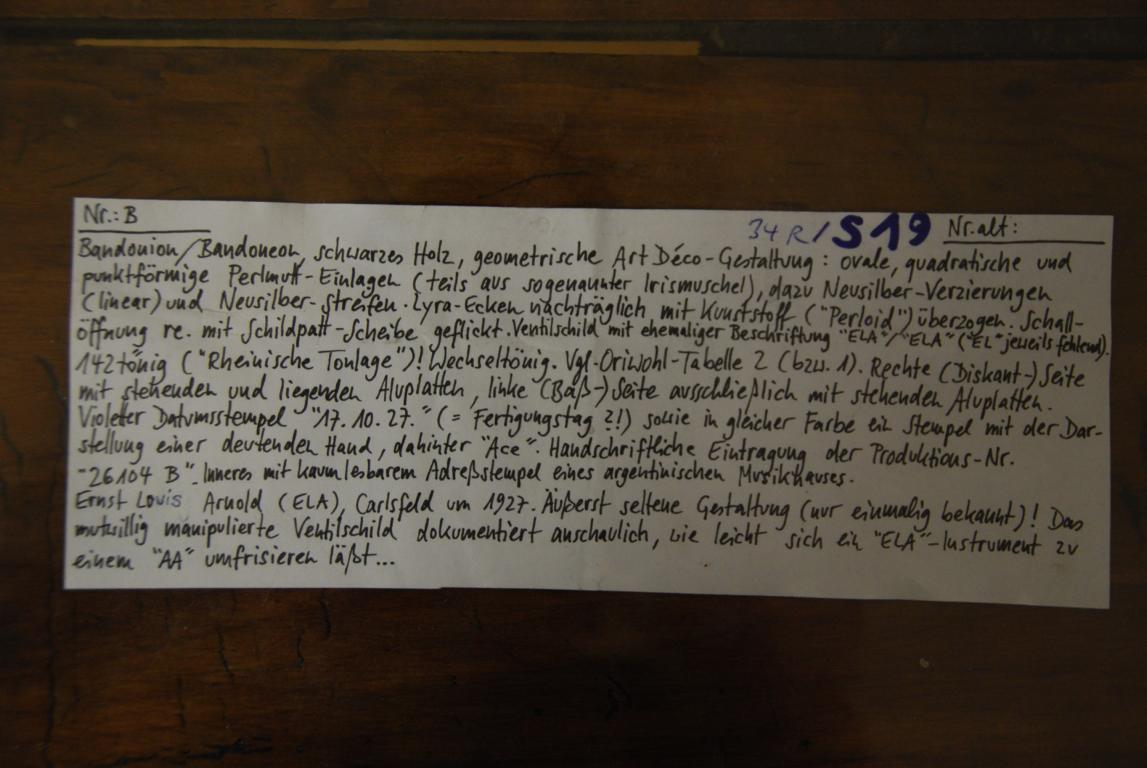 Nr.: B
34 R/S19 Nr. alt:
Bandonion/Bandoneon, schwarzes Holz, geometrische Art Déco-Gestaltung: ovale, quadratische und
punktförmige Perlmutt-Einlagen (teils aus sogenannter Irismuschel), dazu Neusilber-Verzierungen
(linear) und Neusilber-Streifen. Lyra-Ecken nachträglich mit Kunststoff ("Perloid") überzogen. Schall-
öffnung re. mit Schildpatt-Scheibe geflickt. Ventilschild mit ehemaliger Beschriftung "ELA"/"ELA" ("EL" jeweils fehlend).
142tönig ("Rheinische Tonlage")! Wechseltönig. Vgl. Oriwohl-Tabelle 2 (bzw. 1). Rechte (Diskant-)Seite
mit stehenden und liegenden Aluplatten, linke (Baß-)Seite ausschließlich mit stehenden Aluplatten.
Violetter Datumsstempel "17.10.27." (= Fertigungstag ?!) sowie in gleicher Farbe ein Stempel mit der Dar-
stellung einer deutenden Hand, dahinter "Ace". Handschriftliche Eintragung der Produktions-Nr.
"26104 B". Inneres mit kaum lesbarem Adreßstempel eines argentinischen Musikhauses.
Ernst Louis Arnold (ELA), Carlsfeld um 1927. Äußerst seltene Gestaltung (nur einmalig bekannt)! Das
mutwillig manipulierte Ventilschild dokumentiert anschaulich, wie leicht sich ein "ELA"-Instrument zu
einem "AA" umfrisieren läßt...